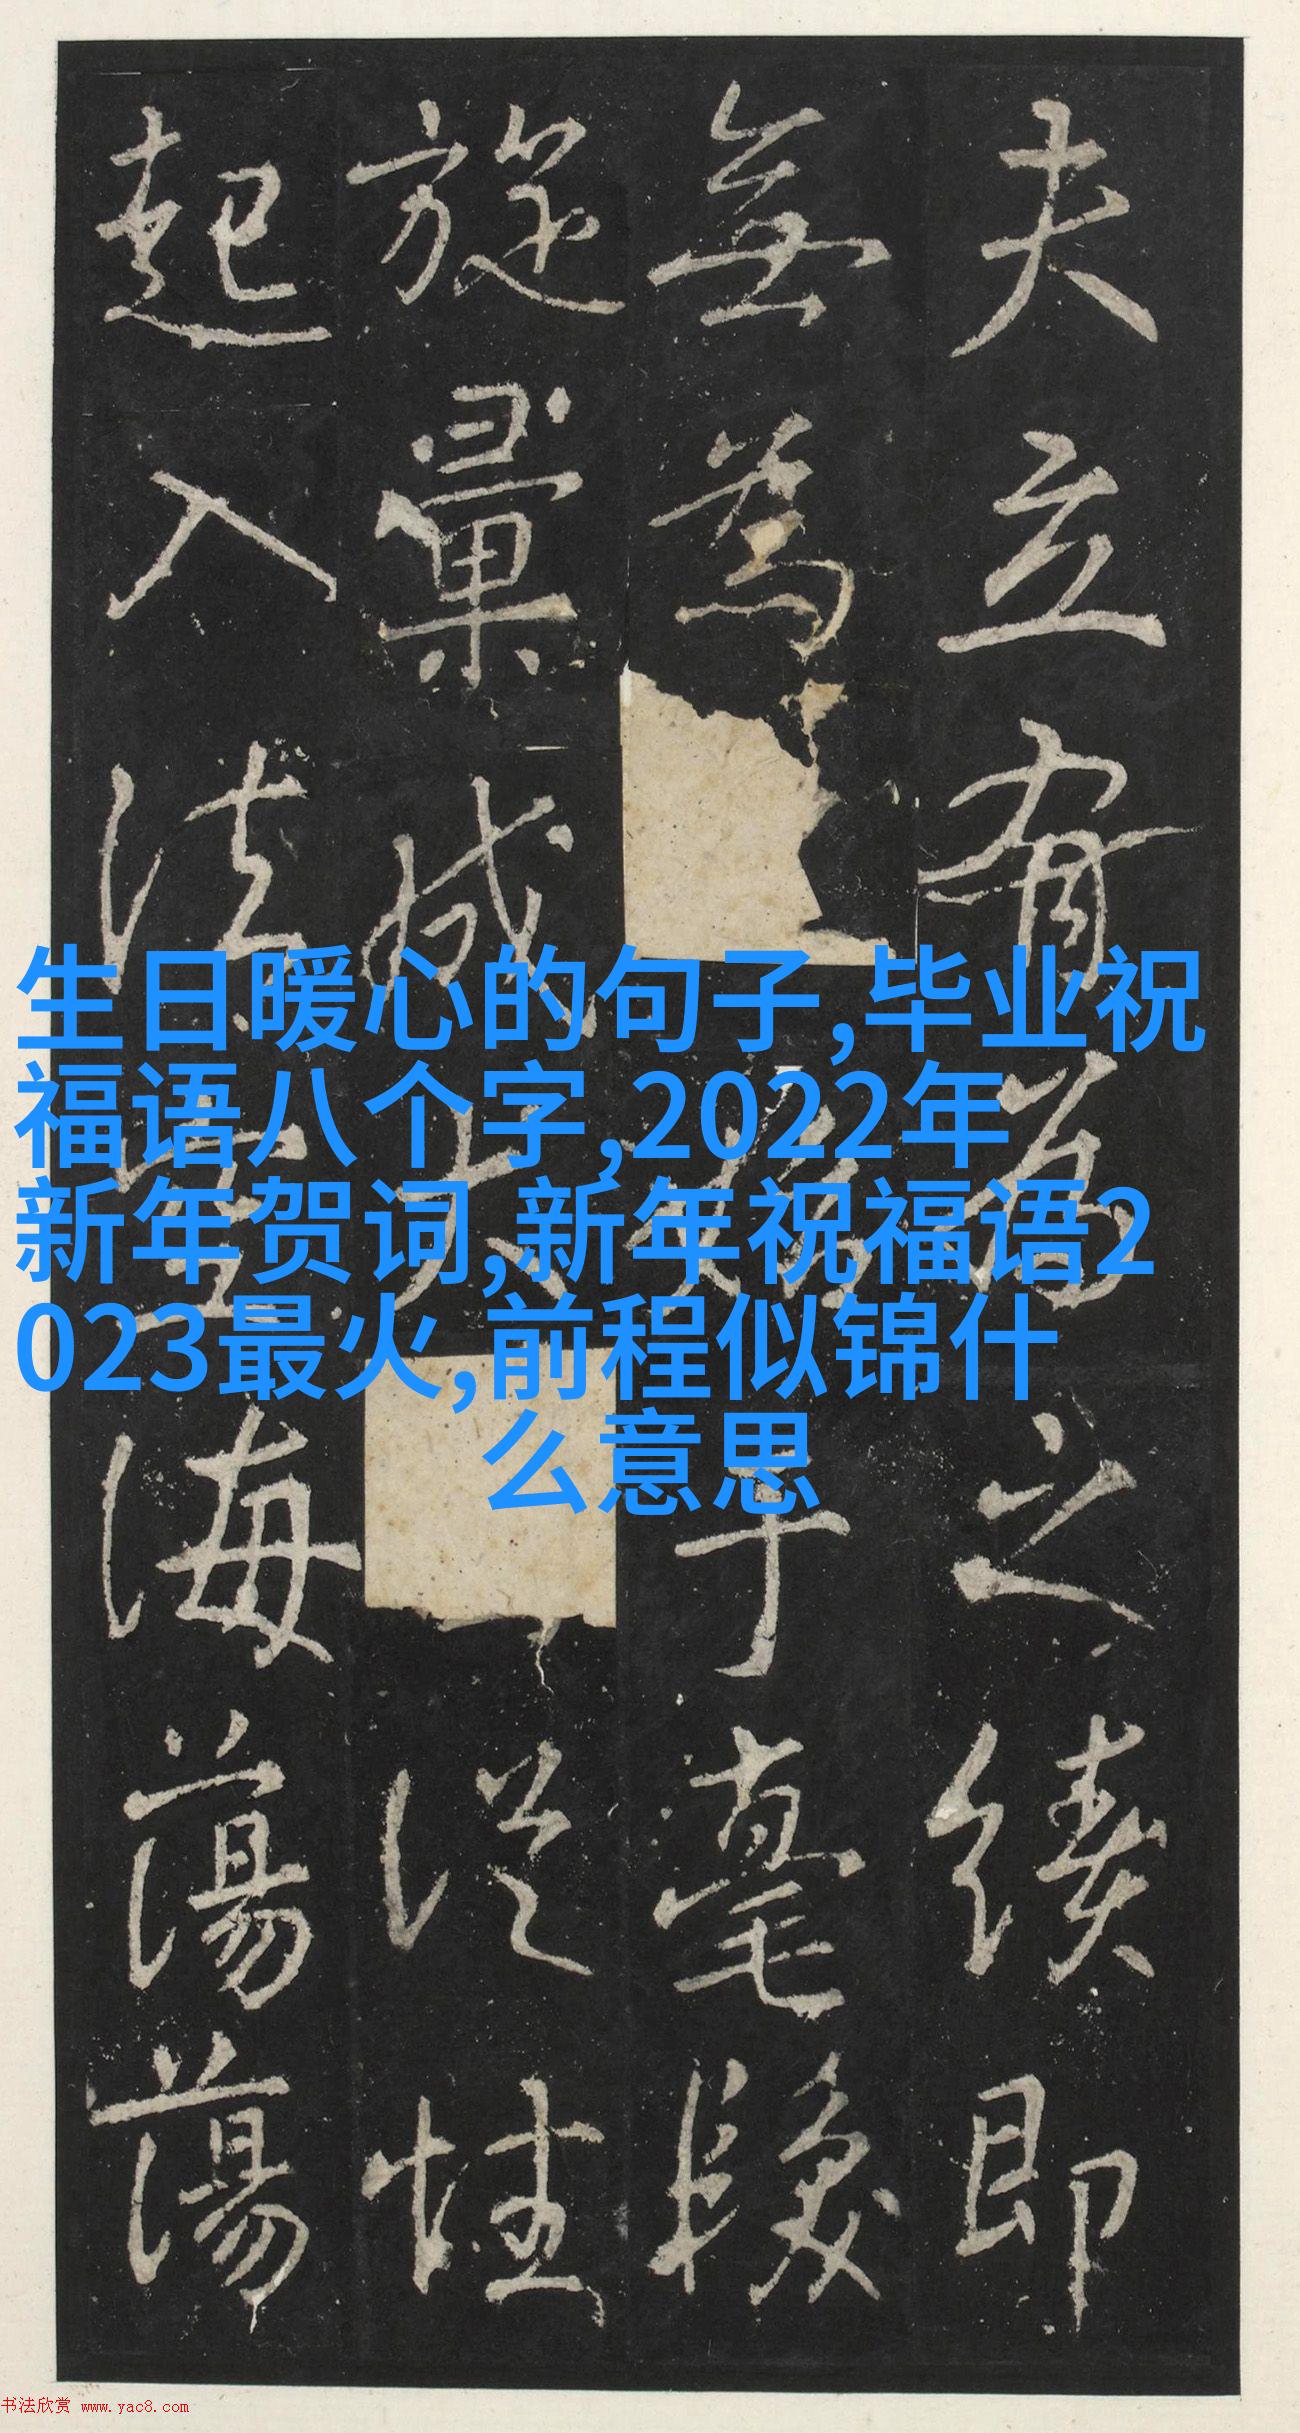 夫立有為之績即
無為于毫
旋彙成從性
起入法海蕩蕩
生日暖心的句子,毕业祝
福语八个字,2022年
新年贺词,新年祝福语2
023最火,前程似锦什
么意思
书法欣赏 www.yac8.com